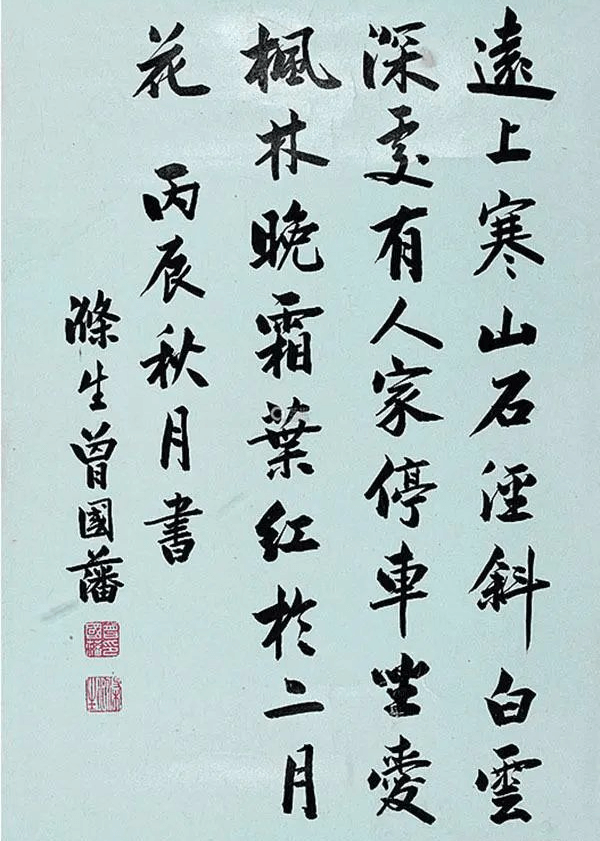 遠上寒山石徑斜白雲
深處有人家停車坐愛
楓林晚霜葉紅於二月
花
丙辰秋月書
滌生曾國藩